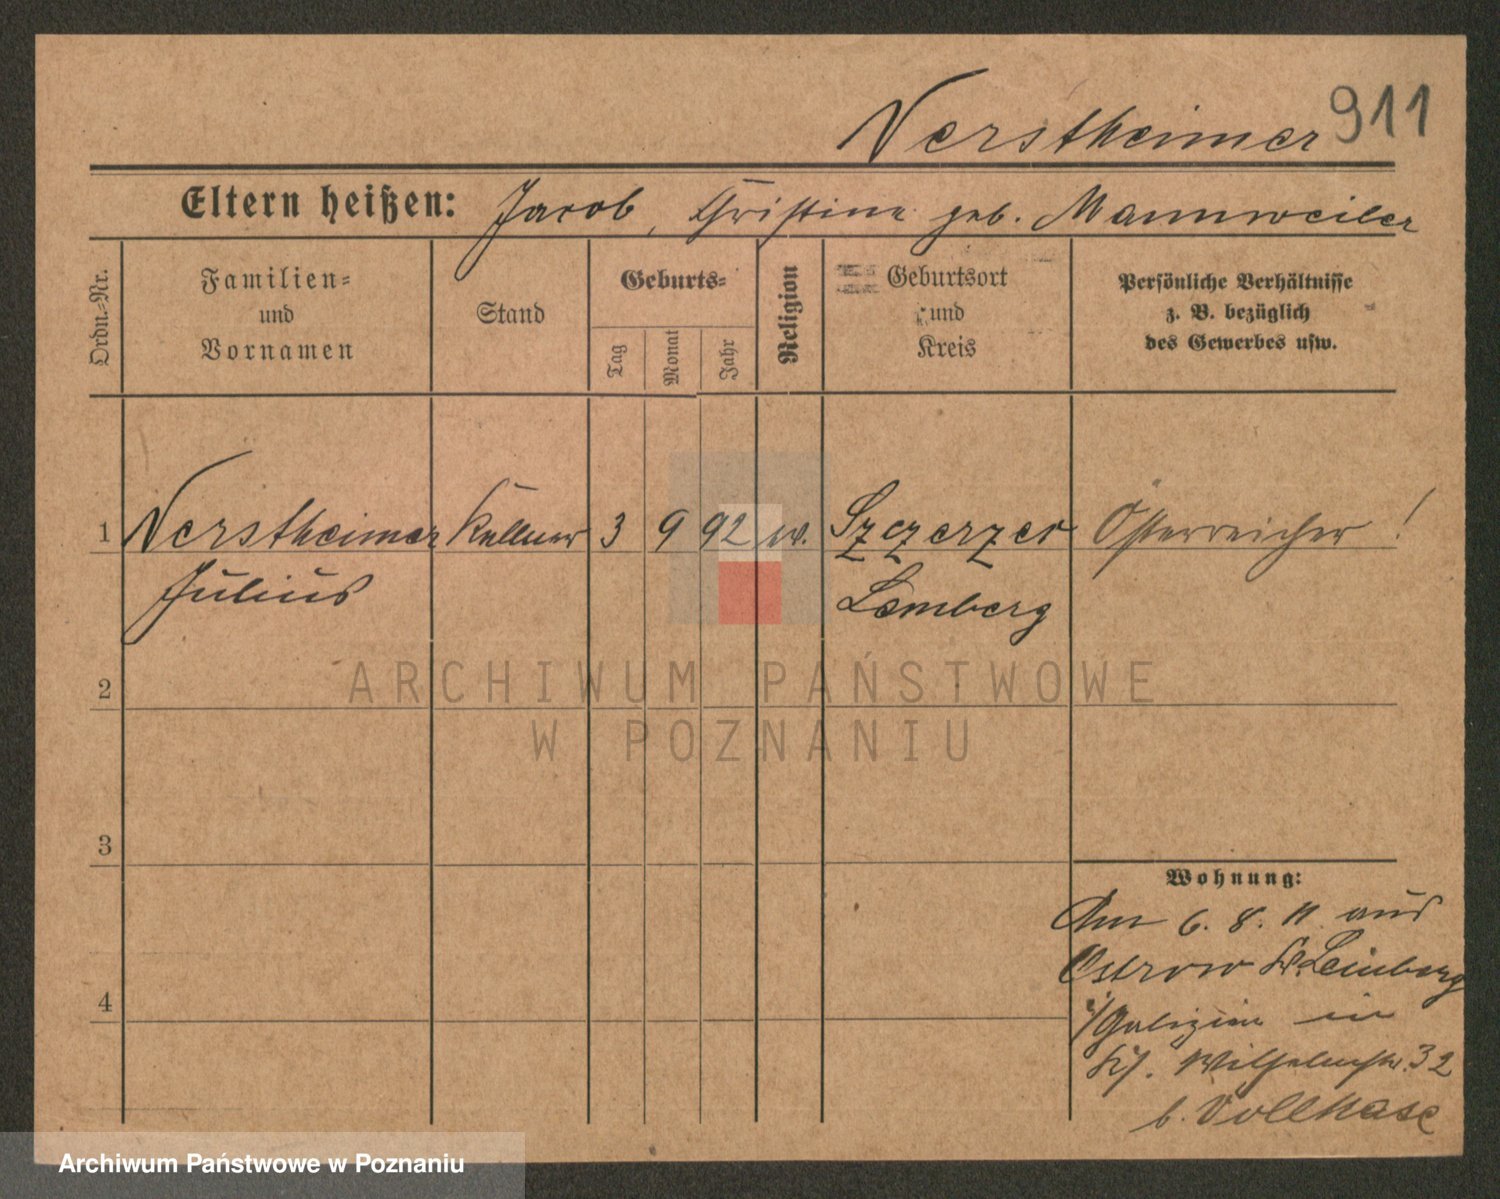 Verstheimer 911
Eltern heißen: Jacob, Christine geb. Mannweiler
Ordn.-Nr.
Familien-
und
Vornamen
Stand
Geburts-
Tag
Monat
Jahr
Religion
Geburtsort
und
Kreis
Persönliche Verhältnisse
z. B. bezüglich
des Gewerbes usw.
1 Verstheimer Kellner 3 9 92 ev. Szczerzec Österreicher!
Julius Lemberg
2
3
4
Wohnung:
Am 6. 8. 11 aus
Ostrow Kr. Lemberg
i/Galizien in
Wilhelmstr. 32
b. Vollhase
ARCHIWUM PAŃSTWOWE
W POZNANIU
Archiwum Państwowe w Poznaniu